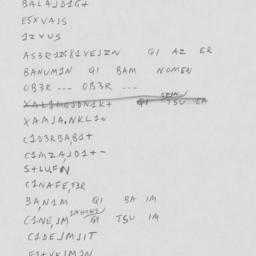 BALAJD1G+
E5XVAJS
1ZVUS
A53R12581VEJZN GI AZ ER
BANUM1N GI BAM NOMEN
OB3R --- OB3R ---
GI TSU
XAMJA,NKL1N
C1D3RBA,B1+
C1MZA,JD1+-
S+LUFN
C1NAFE,T3R
BA,N1M GI BA IM
C1NE,JM GI TSU IM
C1DEJMJIT